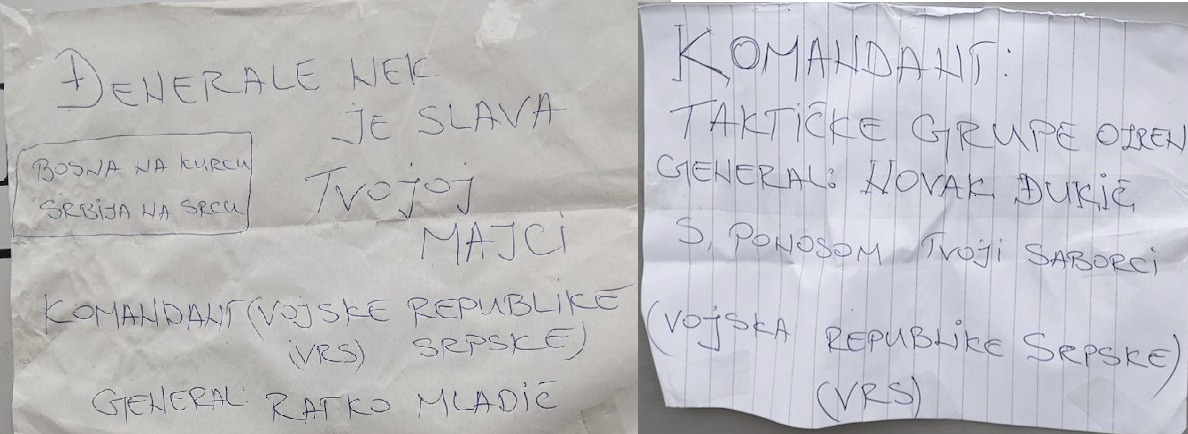 ĐENERALE NEK
JE SLAVA
BOSNA NA KURCU
SRBIJA NA SRCU
TVOJOJ
MAJCI
KOMANDANT (VOJSKE REPUBLIKE
(VRS) SRPSKE)
GENERAL: RATKO MLADIĆ
KOMANDANT:
TAKTIČKE GRUPE OZREN
GENERAL: NOVAK ĐUKIĆ
S, PONOSOM TVOJI SABORCI
(VOJSKA REPUBLIKE SRPSKE)
(VRS)